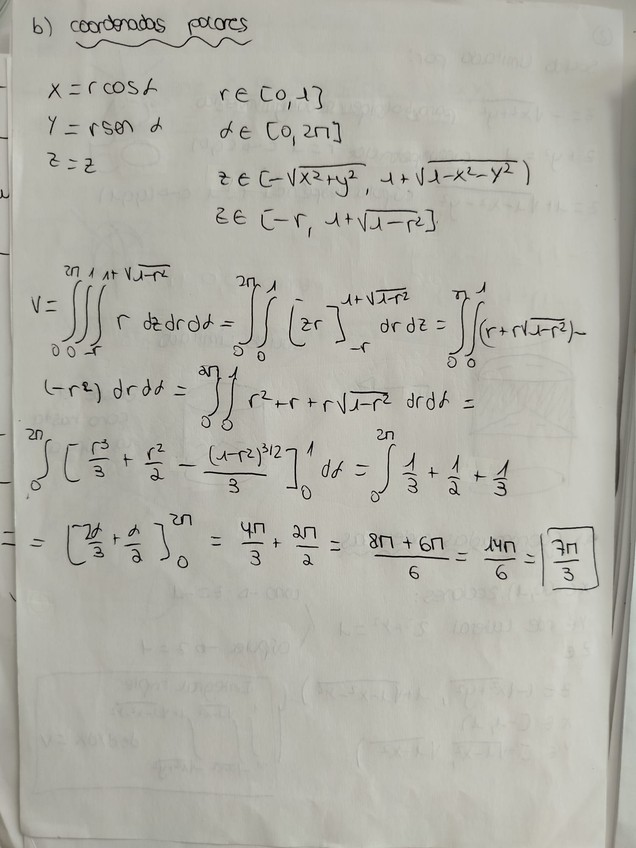 b) coordenadas polores
x = r cos α r ∈ [0, 1]
y = r sen α α ∈ [0, 2π]
z = z z ∈ [-√x²+y², 1+√1-x²-y²)
z ∈ [-r, 1+√1-r²]
V = ∫₀^2π ∫₀^1 ∫₋ᵣ^1+√1-r² r dz dr dα = ∫₀^2π ∫₀^1 [zr]₋ᵣ^1+√1-r² dr dz = ∫₀^π ∫₀^1 (r + r√1-r²) -
(-r²) dr dα = ∫₀^2π ∫₀^1 r² + r + r√1-r² dr dα =
∫₀^2π [r³/3 + r²/2 - (1-r²)^3/2/3]₀^1 dα = ∫₀^2π 1/3 + 1/2 + 1/3
= = [2α/3 + α/2]₀^2π = 4π/3 + 2π/2 = 8π + 6π/6 = 14π/6 = 7π/3